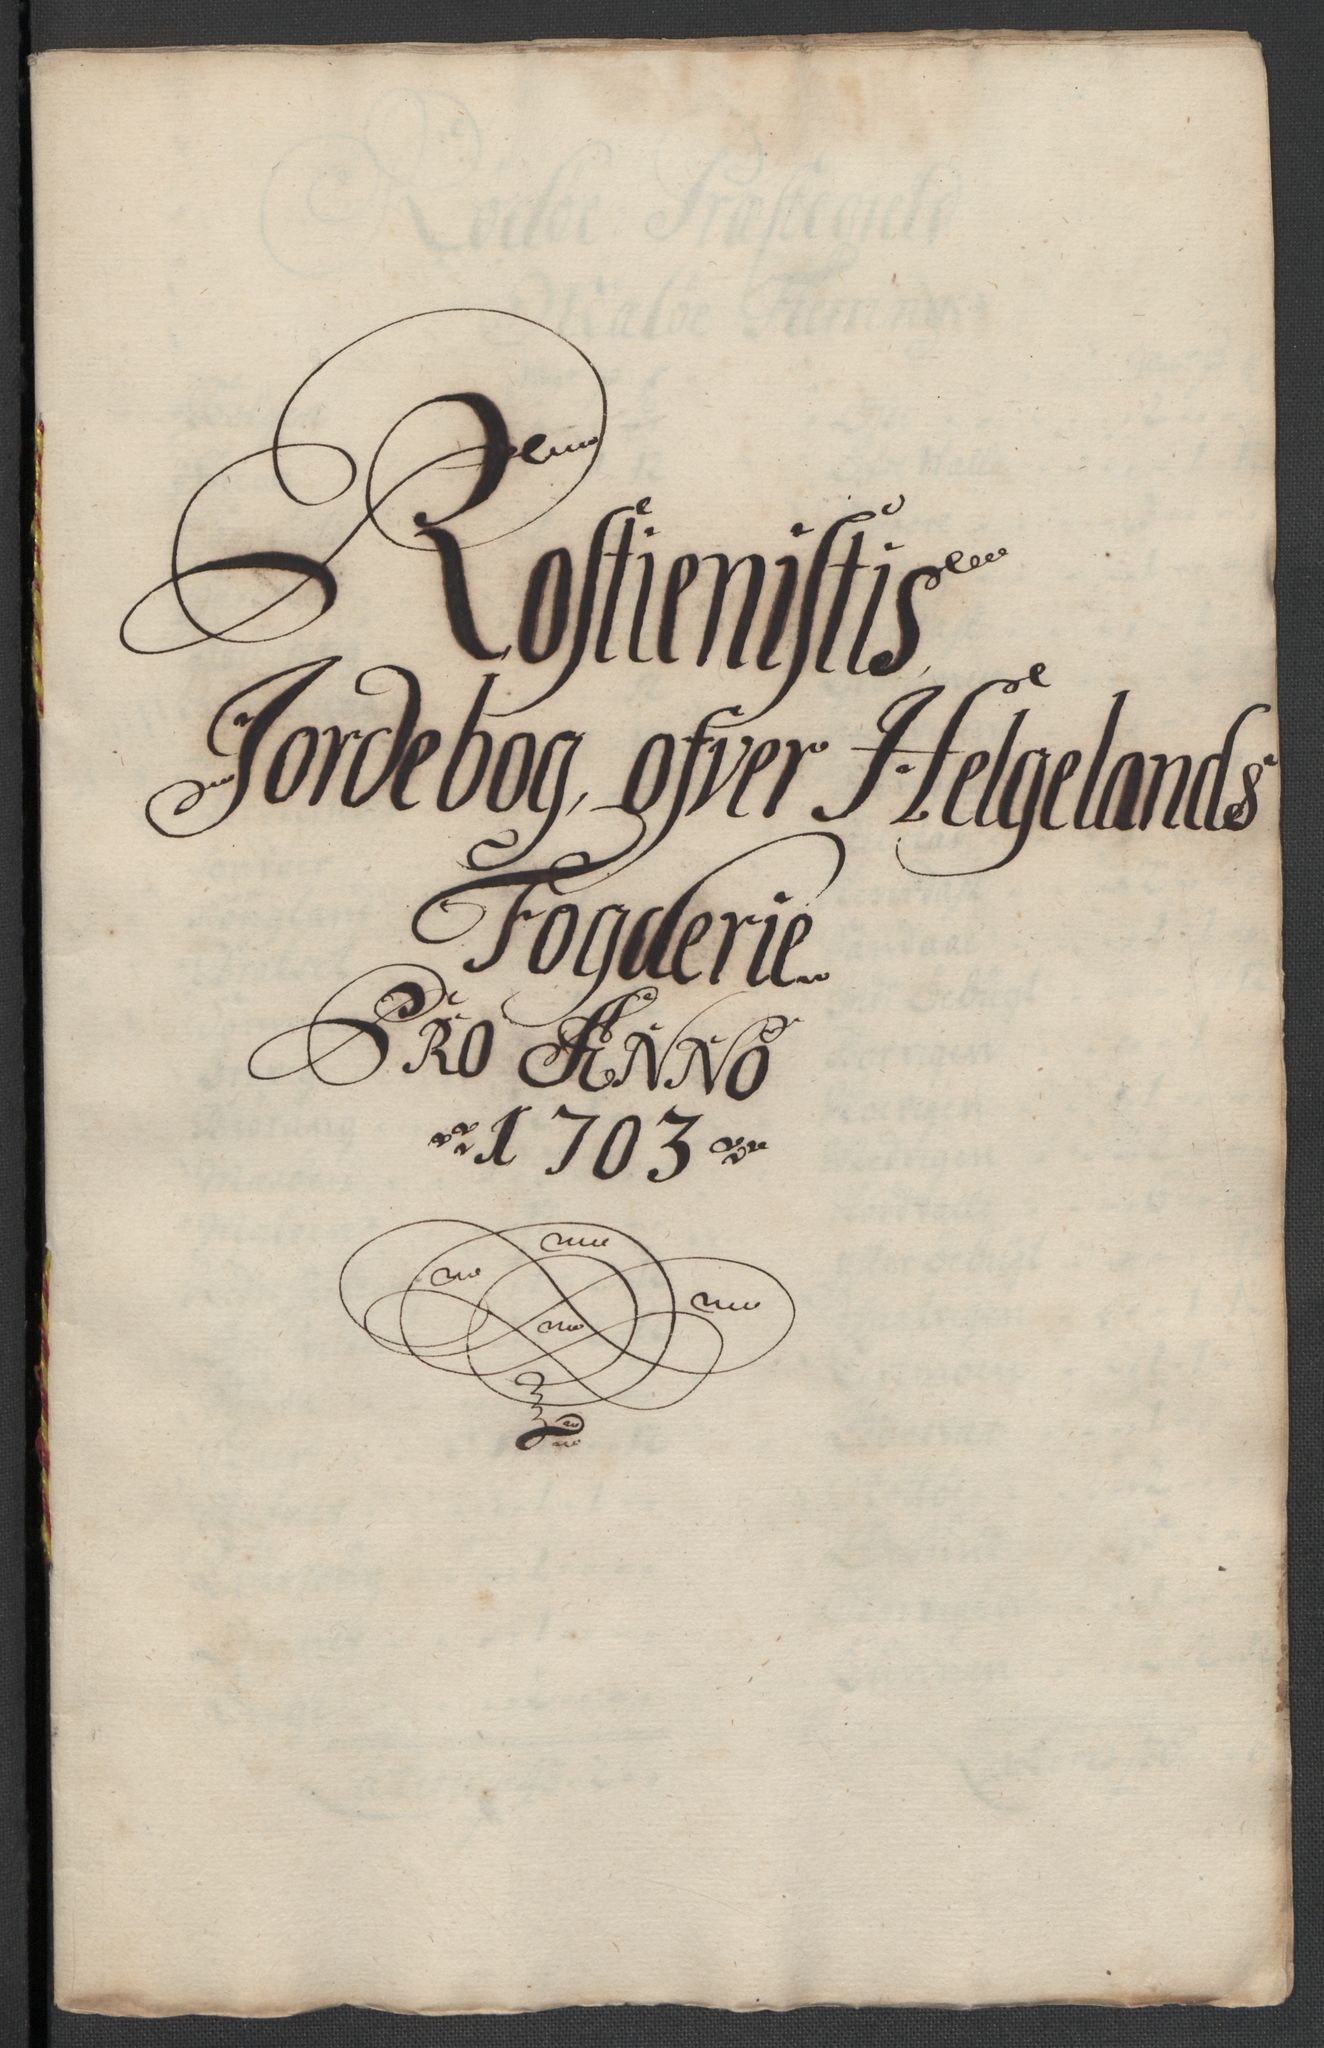 Rostienistis
Jordebog, ofver Helgelands
Fogderie
PRO ANNO
1703